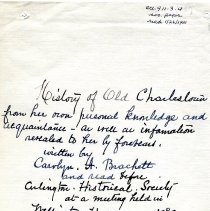 History of Old Charlestown
from her own personal knowledge and
acquaintance - as well as infomation
revealed to her by forebears.
written by
Carolyn A. Brackett
and read before
Arlington Historical Society
at a meeting held in